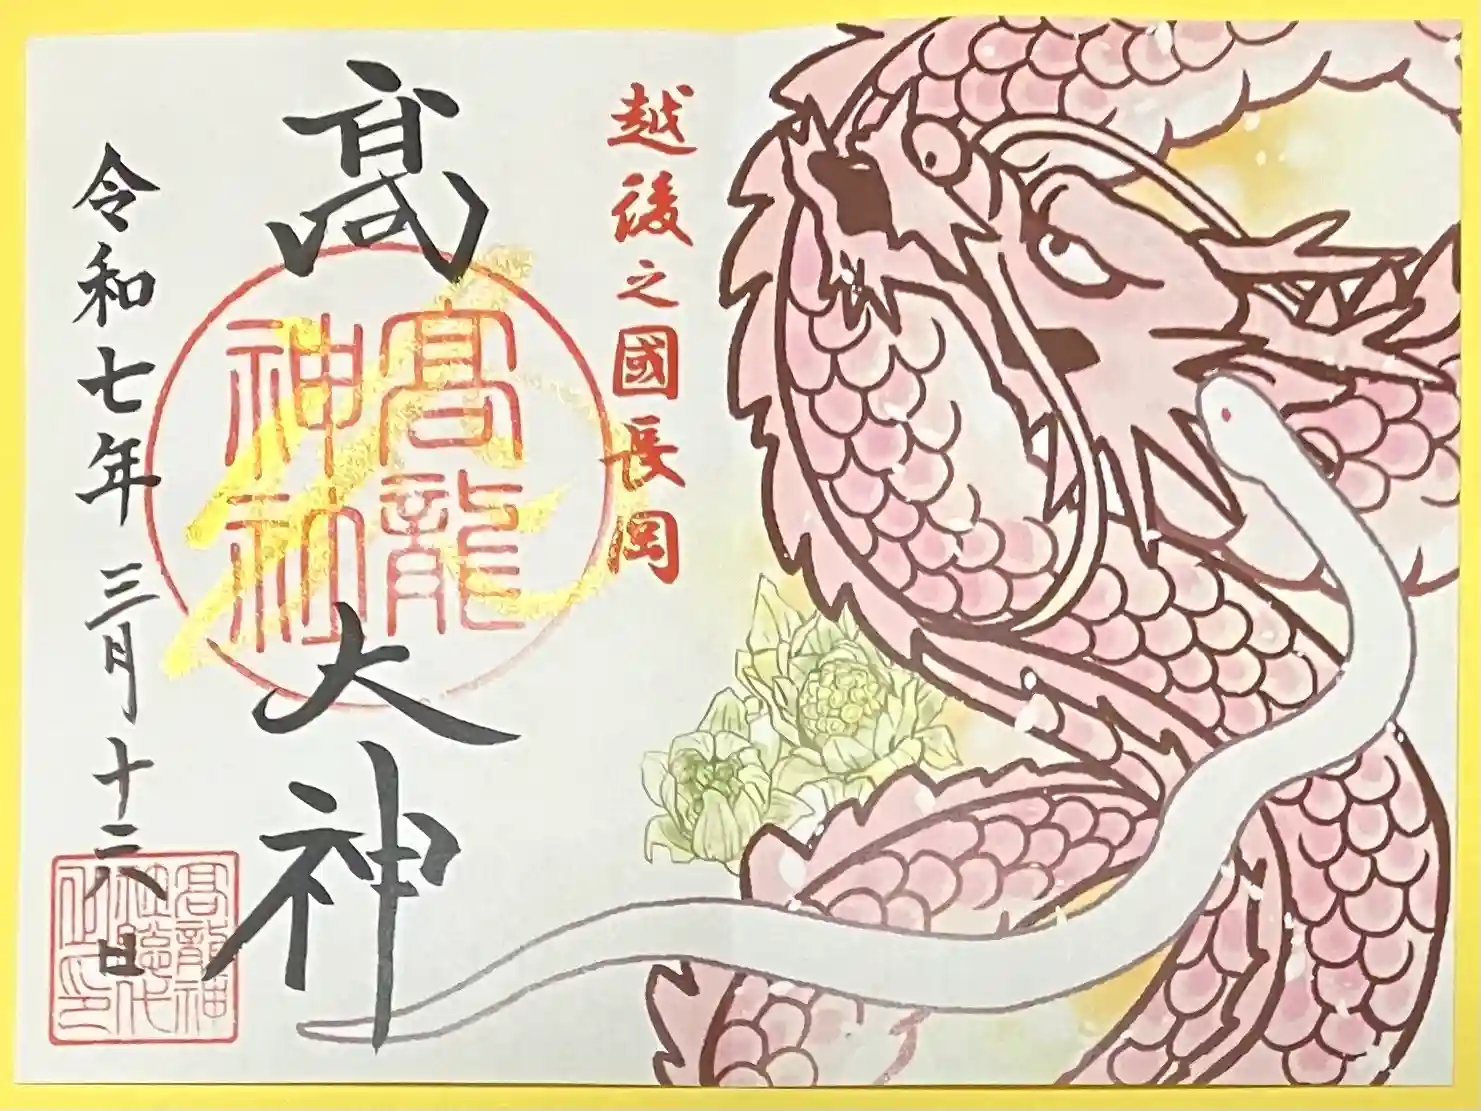 越後之國長岡
髙龍大神
髙龍
神社
令和七年三月十六日
髙龍神
社總代